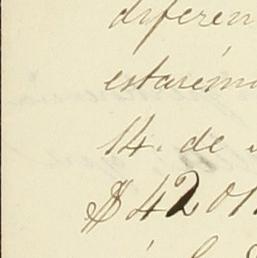 diferen
estarém
14. de
$4201